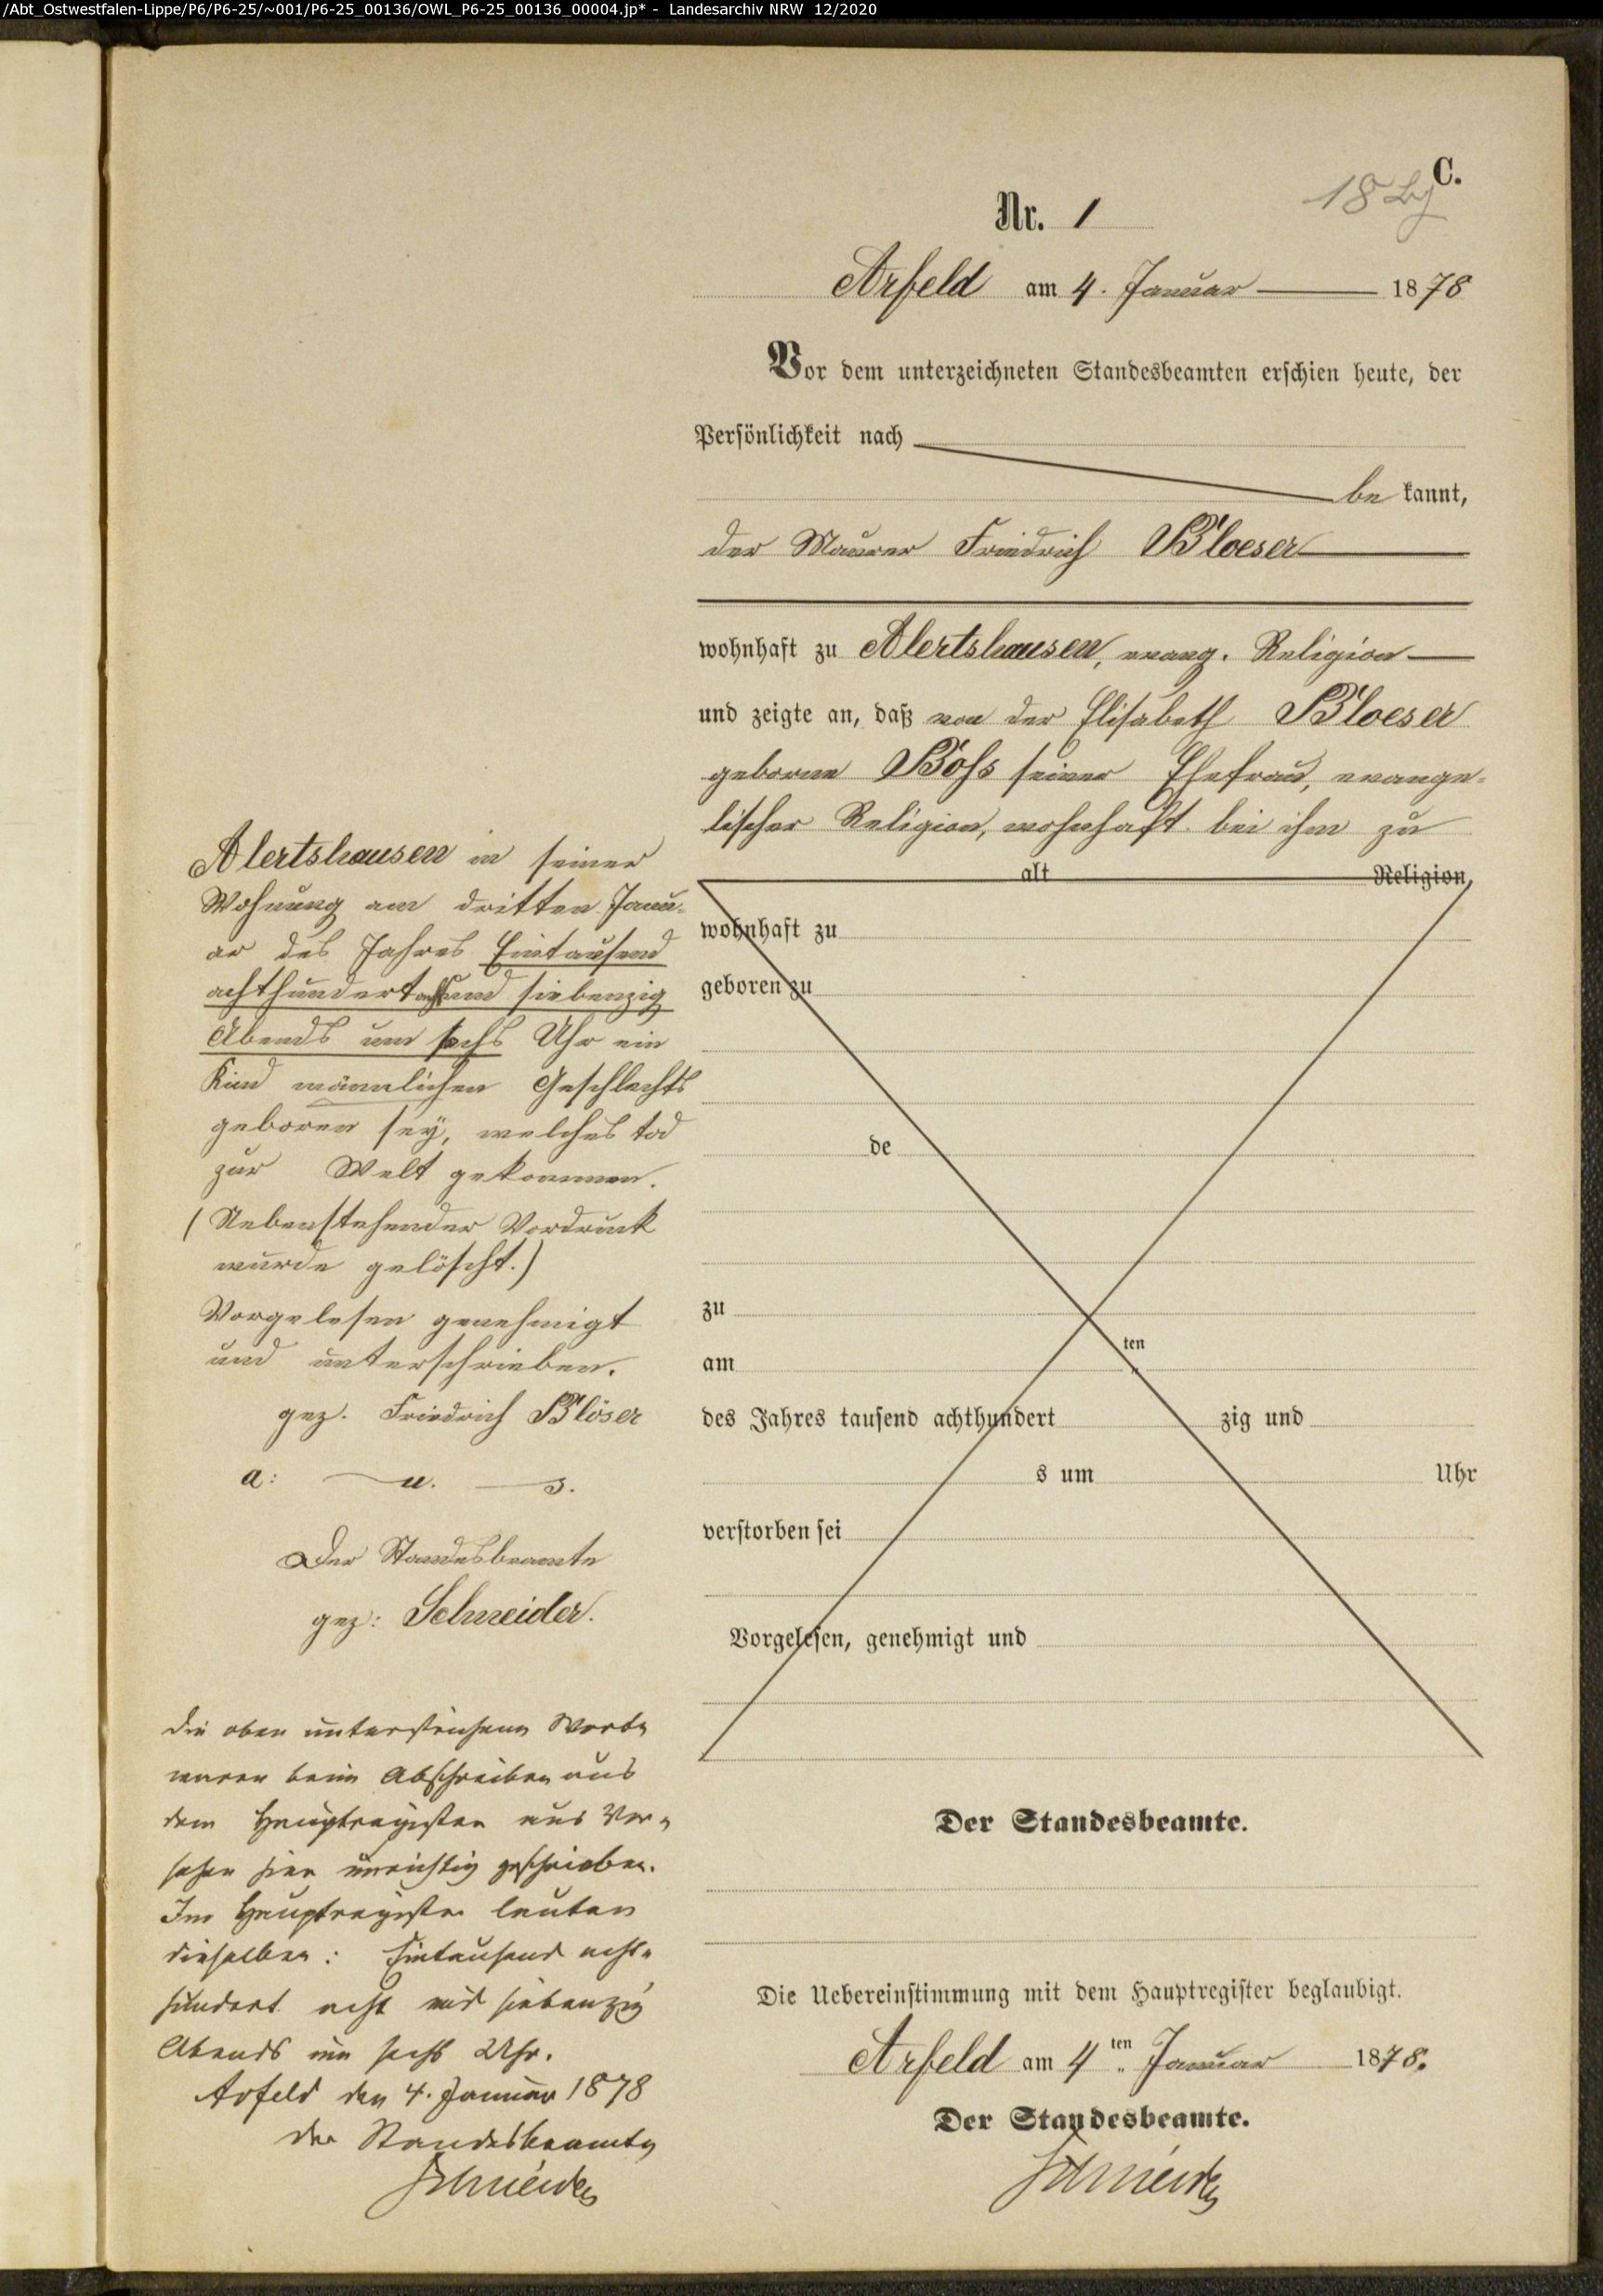 /Abt_Ostwestfalen-Lippe/P6/P6-25/~001/P6-25_00136/OWL_P6-25_00136_00004.jp* - Landesarchiv NRW 12/2020
C.
18
Nr. 1
Arfeld am 4. Januar 1878
Vor dem unterzeichneten Standesbeamten erschien heute, der
Persönlichkeit nach
be kannt,
der Maurer Friedrich Bloeser
wohnhaft zu Alertshausen, evang. Religion
und zeigte an, daß von der Elisabeth Bloeser
geborne Böhs seiner Ehefrau, evange-
lischer Religion, wohnhaft bei ihm zu
alt Religion,
wohnhaft zu
geboren zu
de
zu
am ten
des Jahres tausend achthundert zig und
s um Uhr
verstorben sei
Vorgelesen, genehmigt und
Der Standesbeamte.
Die Uebereinstimmung mit dem Hauptregister beglaubigt.
Arfeld am 4ten Januar 1878.
Der Standesbeamte.
Schneider
Alertshausen in seiner
Wohnung am dritten Janu-
ar des Jahres Eintausend
achthundert acht und siebenzig
Abends um sechs Uhr ein
Kind männlichen Geschlechts
geboren sey, welches tod
zur Welt gekommen.
(Nebenstehender Vordruck
wurde gelöscht.)
Vorgelesen genehmigt
und unterschrieben.
gez. Friedrich Blöser
a: u. s.
Der Standesbeamte
gez: Schneider.
Die oben unterstrichenen Worte
waren beim Abschreiben aus
dem Hauptregister aus Ver-
sehen hier unrichtig geschrieben.
Im Hauptregister lauten
dieselben: Eintausend acht-
hundert acht und siebenzig
Abends um sechs Uhr.
Arfeld den 4. Januar 1878
Der Standesbeamte
Schneider